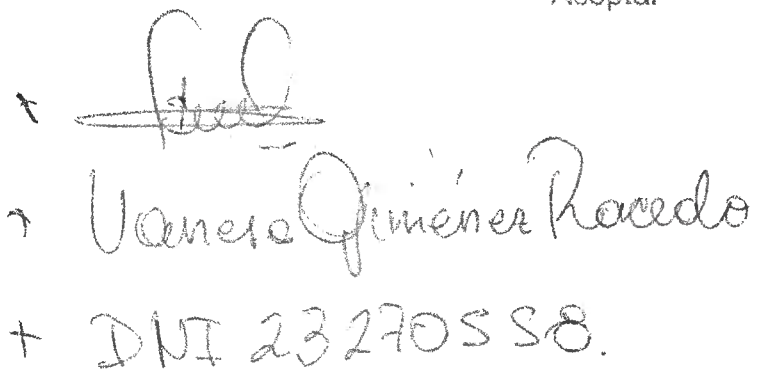 +
+ Vanesa Giménez Racedo
+ DNI 23270558.